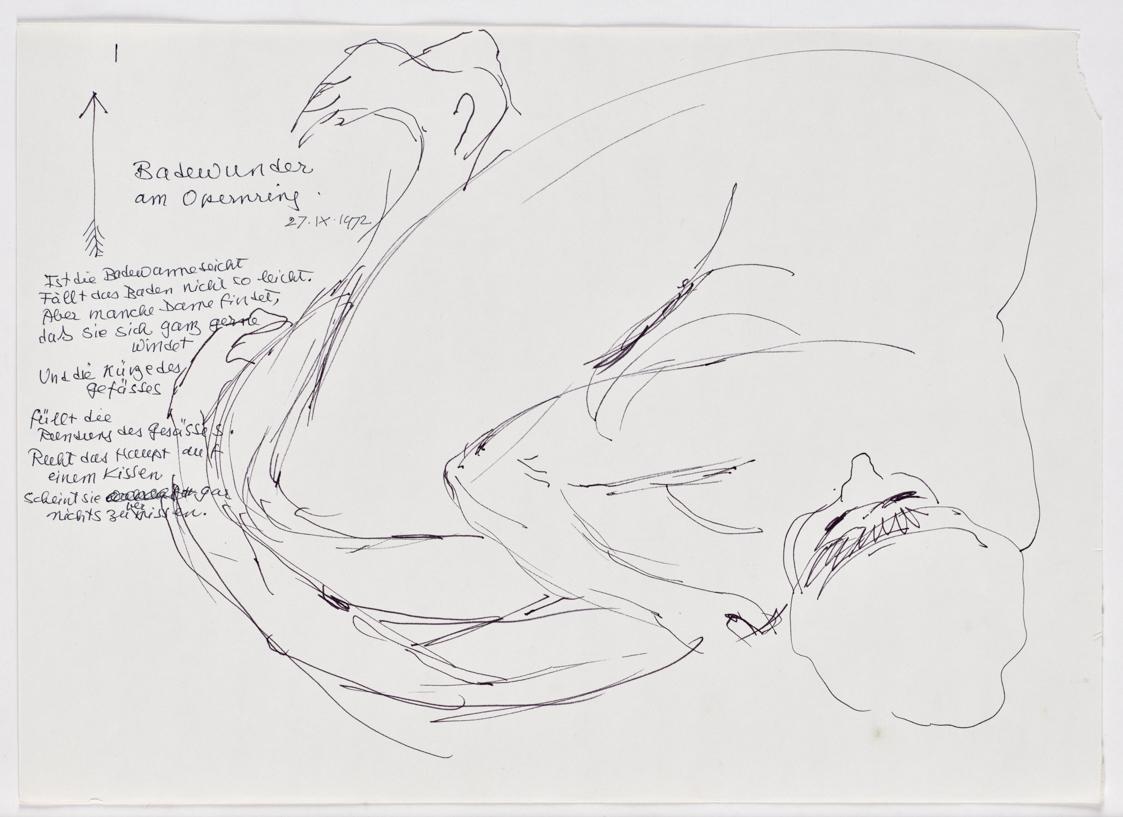 Badewunder
am Opernring.
27.IX.1972
Ist die Badewanne seicht
Fällt das Baden nicht so leicht.
Aber manche Dame findet,
daß sie sich ganz gerne
windet
Und die Kürze des
gefässes
füllt die
Rundung des gesässes.
Ruht das Haupt auf
einem Kissen
Scheint sie gar
nichts zu missen.